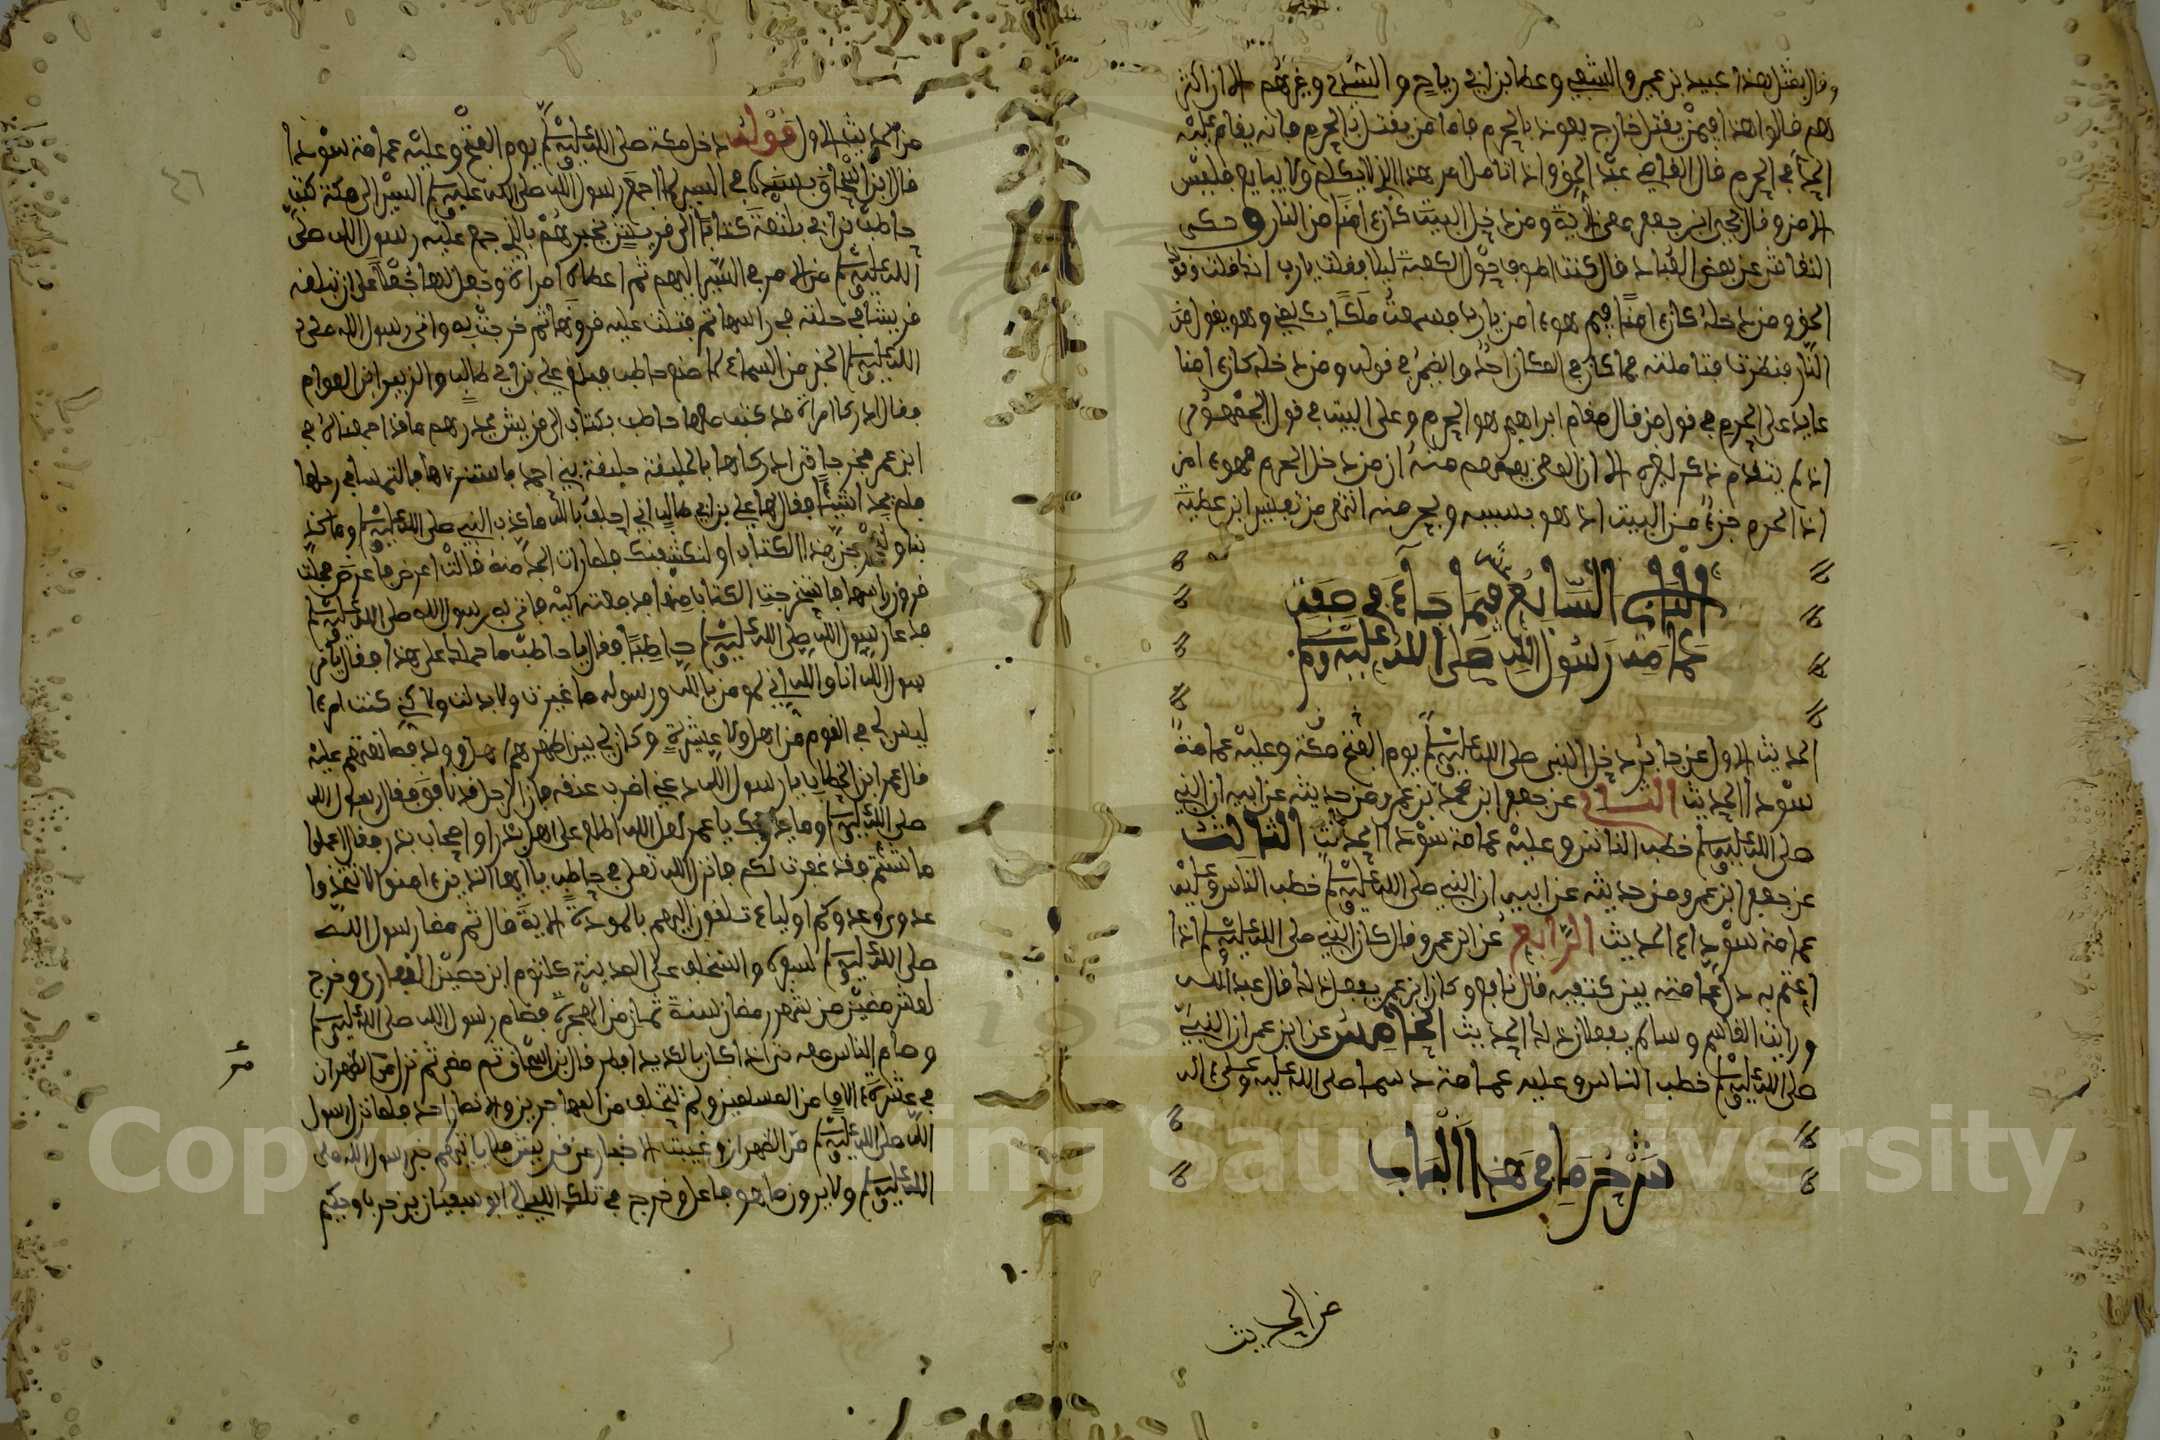 وقال بمثل هذا عبيد بن عمير والشعبي وعطا بن ابي رباح و السُّدي وغيرهم الا ان اكثر
هم قالوا هذا فيمن يقتل خارج يعوذ بالحرم فاما من يقتل في الحرم فانه يقام عليه
الحد في الحرم قال القاضي عبد الحق واذا تامل امر هذا الذي لا يكلم ولا يبايع فليس
بامن وقال يحيى ابن جعدة معنى الاية ومن دخل البيت كان ءامنا من النار وحكى
النقاش عن بعض العُباد قال كنت اطوف حول الكعبة ليلا فقلت يا رب انك قلت وقولك
الحق ومن دخله كان ءامنا فيم هو ءامن يا رب فسمعت ملكا يكلمني وهو يقول من
النار فنظرت فتاملته فما كان في المكان احد والضمير في قوله ومن دخله كان ءامنا
عايد على الحرم في قول من قال مقام ابراهيم هو الحرم وعلى البيت في قول الجمهور
اذ لم يتقدم ذكر لغيره الا ان المعنى يفهم منه ان من دخل الحرم فهو ءامن
اذ الحرم جزء من البيت اذ هو بسببه وبحرمته انتهى من تفسير ابن عطية
الباب السابع فيما جاء في صفة
عمامة رسول الله صلى الله عليه وسلم
الحديث الاول عن جابر دخل النبي صلى الله عليه وسلم يوم الفتح مكة وعليه عمامة
سودا الحديث الثاني عن جعفر ابن محمد بن عمرو من حديثه عن ابيه ان النبي
صلى الله عليه وسلم خطب الناس وعليه عمامة سودا الحديث الثالث
عن جعفر ابن عمرو من حديثه عن ابيه ان النبي صلى الله عليه وسلم خطب الناس وعليه
عمامة سوداء الحديث الرابع عن ابن عمر وقال كان النبي صلى الله عليه وسلم اذا
اعتم به دل عمامته بين كتفيه قال نافع وكان ابن عمر يفعل ذلك قال عبد الله
ورايت القاسم وسالم يفعلان ذلك الحديث الخامس عن ابن عمر ان النبي
صلى الله عليه وسلم خطب الناس وعليه عمامة دسما صلى الله عليه وعلى ءاله
شرح ما في هذا الباب
من الحديث
من الحديث الاول قوله دخل مكة صلى الله عليه وسلم يوم الفتح وعليه عمامة سودا
قال ابن اسحاق بسنده في السير لما اجمع رسول الله صلى الله عليه وسلم السير الى مكة كتب
حاطب بن ابي بلتعة كتابا الى قريش يخبرهم بالذي جمع عليه رسول الله صلى
الله عليه وسلم من الامر في السير اليهم ثم اعطاه امراة وجعل لها جعلا على ان تبلغه
قريشا فجعلته في راسها ثم فتلت عليه قرونها ثم خرجت به واتى رسول الله صلى
الله عليه وسلم الخبر من السماء بما صنع حاطب فبعث علي بن ابي طالب والزبير ابن العوام
فقال ادركا امراة قد كتب معها حاطب بكتاب الى قريش يحذرهم ما قد اجمعنا له في
امرهم فخرجا حتى ادركاها بالحليفة حليفة بني احمد فاستنزلاها فالتمسا في رحلها
فلم يجدا شيئا فقال لها علي بن ابي طالب اني احلف بالله ما كذب النبي صلى الله عليه وسلم وما كذ
بنا ولتخرجن هذا الكتاب او لنكشفنك فلما رات الجد منه قالت اعرض فاعرض فحلت
قرون راسها فاستخرجت الكتاب منها فدفعته اليه فاتى به رسول الله صلى الله عليه وسلم
فدعا رسول الله صلى الله عليه وسلم حاطبا فقال يا حاطب ما حملك على هذا فقال يا ر
سول الله انا والله اني لمومن بالله ورسوله ما غيرت ولا بدلت ولاكني كنت امرءا
ليس لي في القوم من اهل ولا عشيرة وكان لي بين اظهرهم اهل وولد فصانعتهم عليه
قال عمر ابن الخطاب يا رسول الله دعني اضرب عنقه فان الرجل قد نافق فقال رسول الله
صلى الله عليه وسلم وما يدريك يا عمر لعل الله اطلع على اهل بدر او اصحاب بدر فقال اعملوا
ما شئتم فقد غفرت لكم فانزل الله تعلى في حاطب يا ايها الذين ءامنوا لا تتخذوا
عدوي وعدوكم اولياء تلقون اليهم بالمودة الاية قال ثم مضا رسول الله
صلى الله عليه وسلم لسفره واستخلف على المدينة كلثوم ابن حصين الغفاري وخرج
لعشر مضين من شهر رمضان سنة ثمان من الهجرة فصام رسول الله صلى الله عليه وسلم
وصام الناس معه حتى اذا كان بالكديد افطر قال ابن اسحاق ثم مضى ثم نزل مر الظهران
في عشرة ءالاف من المسلمين ولم يتخلف من المهاجرين والانصار احد فلما نزل رسول
الله صلى الله عليه وسلم مر الظهران وعميت الاخبار عن قريش فلا ياتيهم خبر رسول الله صلى
الله عليه وسلم ولا يدرون ما هو فاعل وخرج في تلك الليالي ابو سفيان بن حرب وحكيم
Copyright © King Saud University
1957